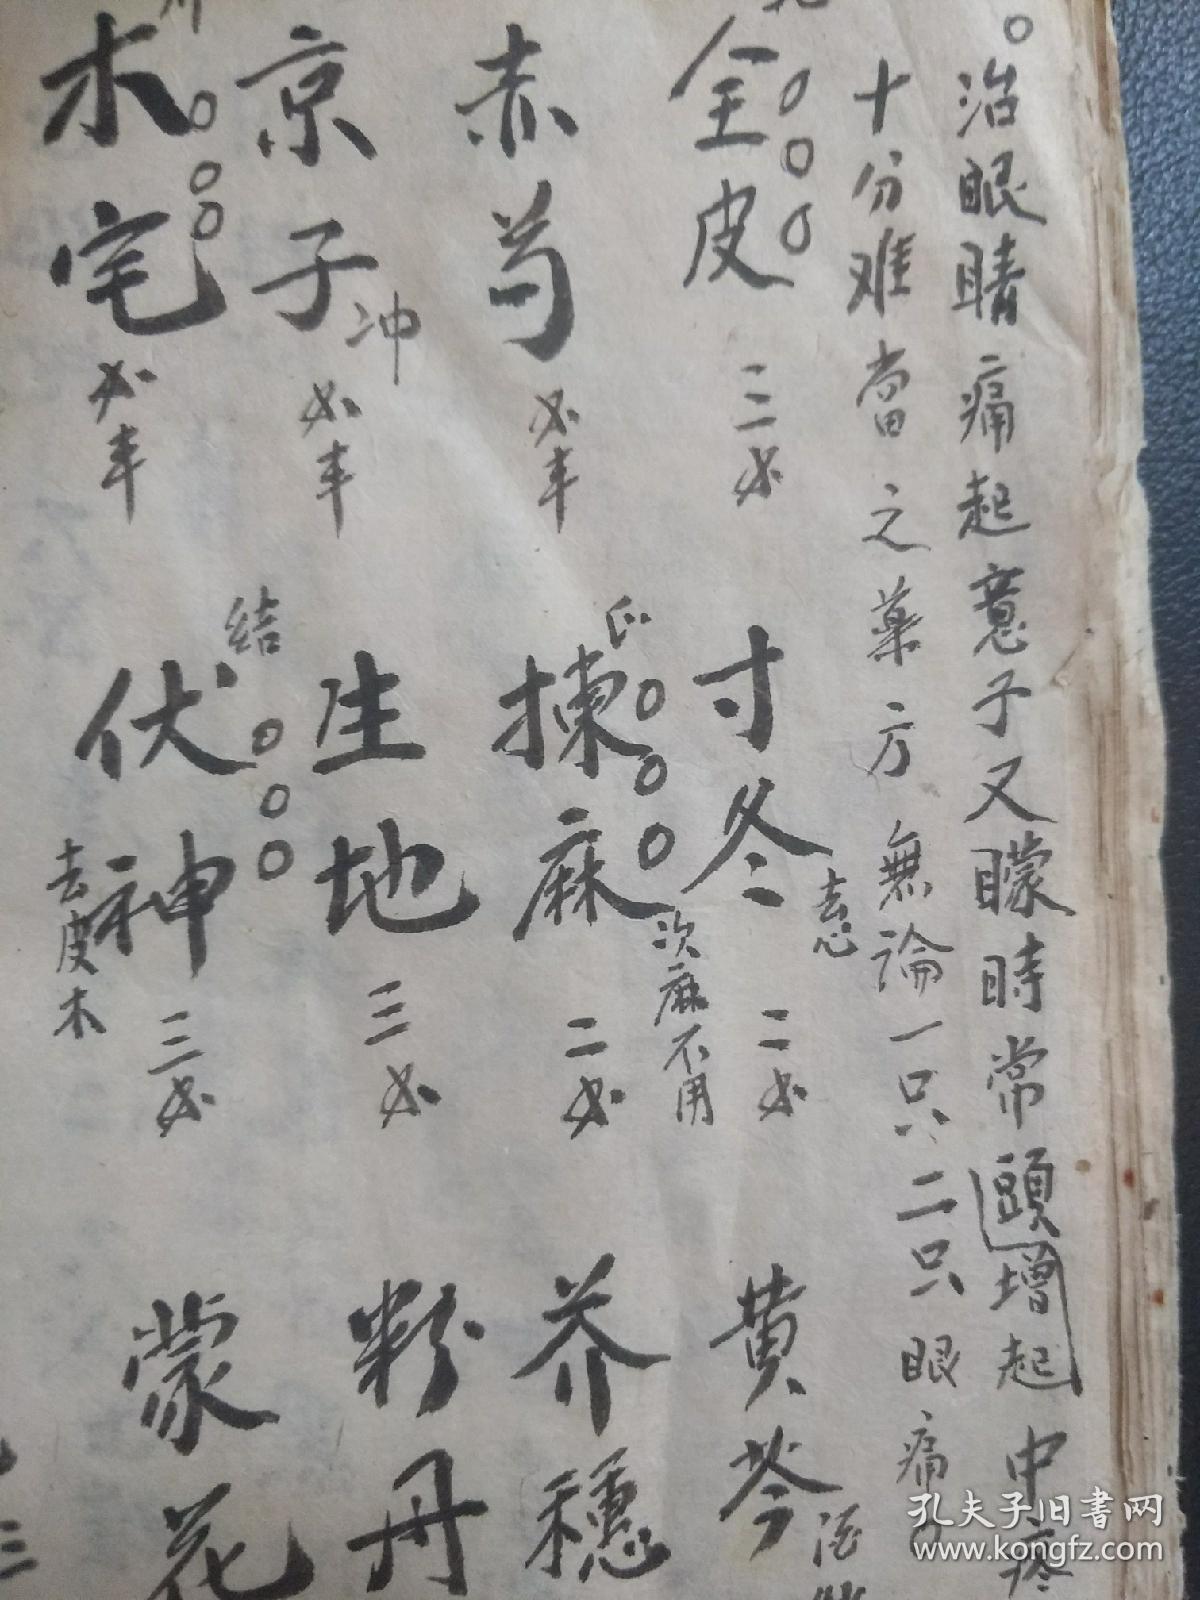 治眼睛痛起意子又矇時常頭增起中疼
十分难當之藥方無論一只二只眼痛
全皮 三 寸冬 去心 二 黄芩 酒
赤芍 揀麻 次麻不用 二 芥穗
京子 冲 生地 三 粉丹
木宅 结 伏神 去皮木 三 蒙花
三
孔夫子旧书网
www.kongfz.com